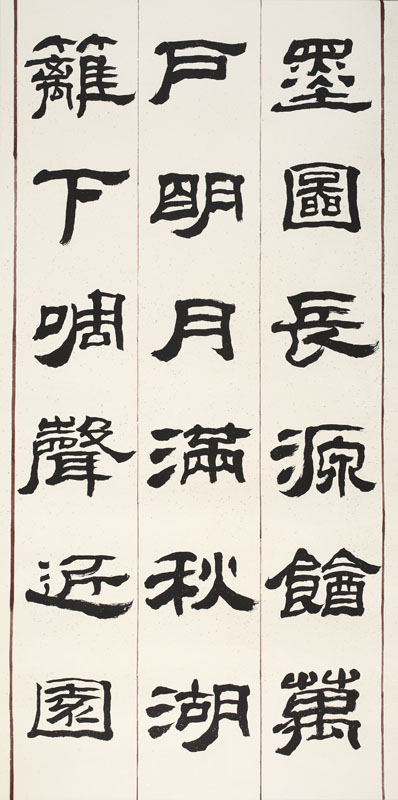 墨圖長源萬
戶明月滿秋湖
籬下啁聲近園